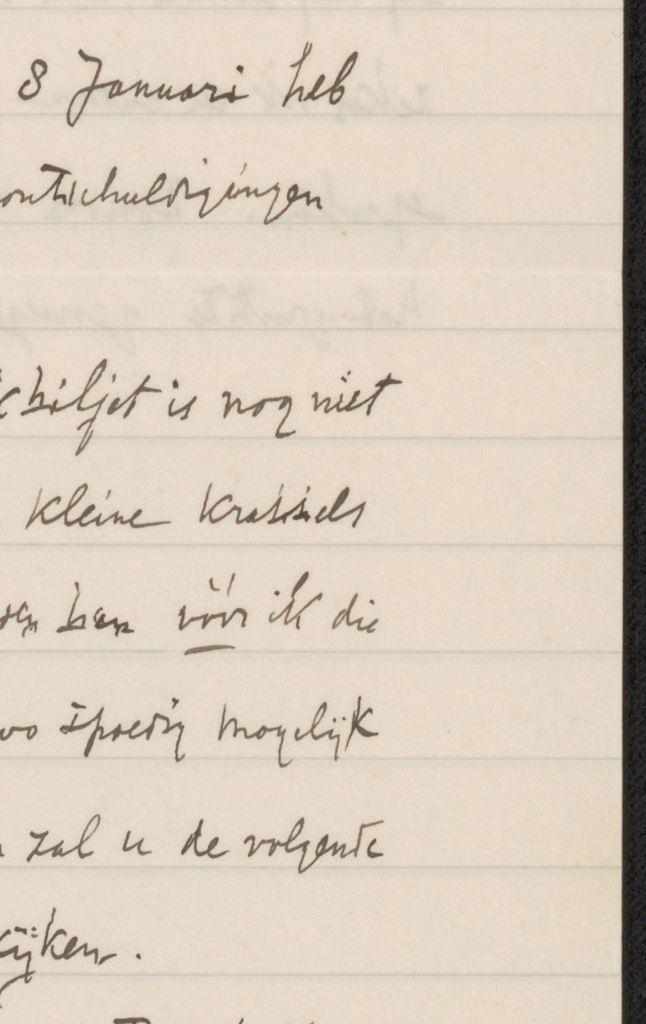 8 Januari heb
ontschuldigingen
biljet is nog niet
kleine krabbels
ben vóór ik die
zoo spoedig mogelijk
zal u de volgende
kijken.